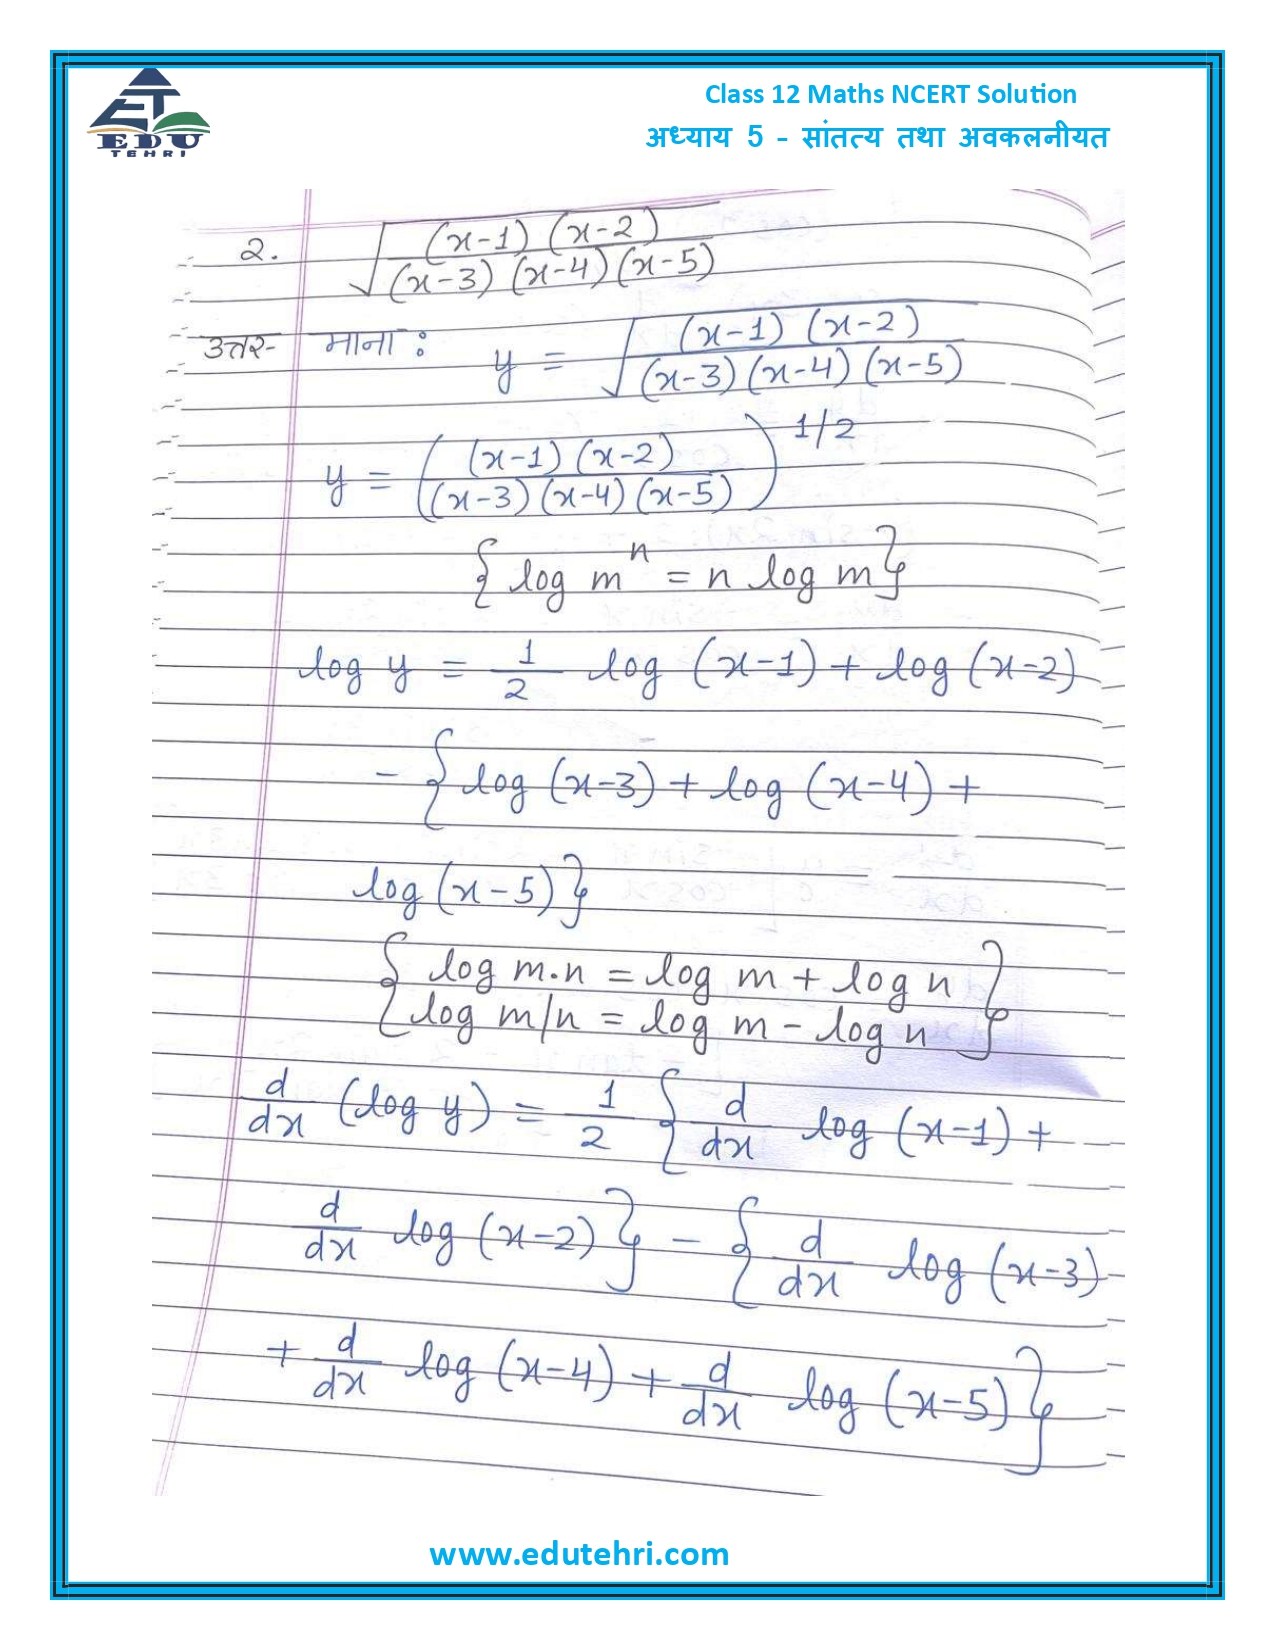 EDU
TEHRI
Class 12 Maths NCERT Solution
अध्याय 5 - सांतत्य तथा अवकलनीयत
2. √((x-1) (x-2) / (x-3) (x-4) (x-5))
उत्तर- माना : y = √((x-1) (x-2) / (x-3) (x-4) (x-5))
y = ((x-1) (x-2) / (x-3) (x-4) (x-5))^1/2
{log m^n = n log m}
log y = 1/2 log (x-1) + log (x-2)
- { log (x-3) + log (x-4) +
log (x-5)}
{ log m.n = log m + log n
log m/n = log m - log n }
d/dx (log y) = 1/2 { d/dx log (x-1) +
d/dx log (x-2) } - { d/dx log (x-3)
+ d/dx log (x-4) + d/dx log (x-5) }
www.edutehri.com